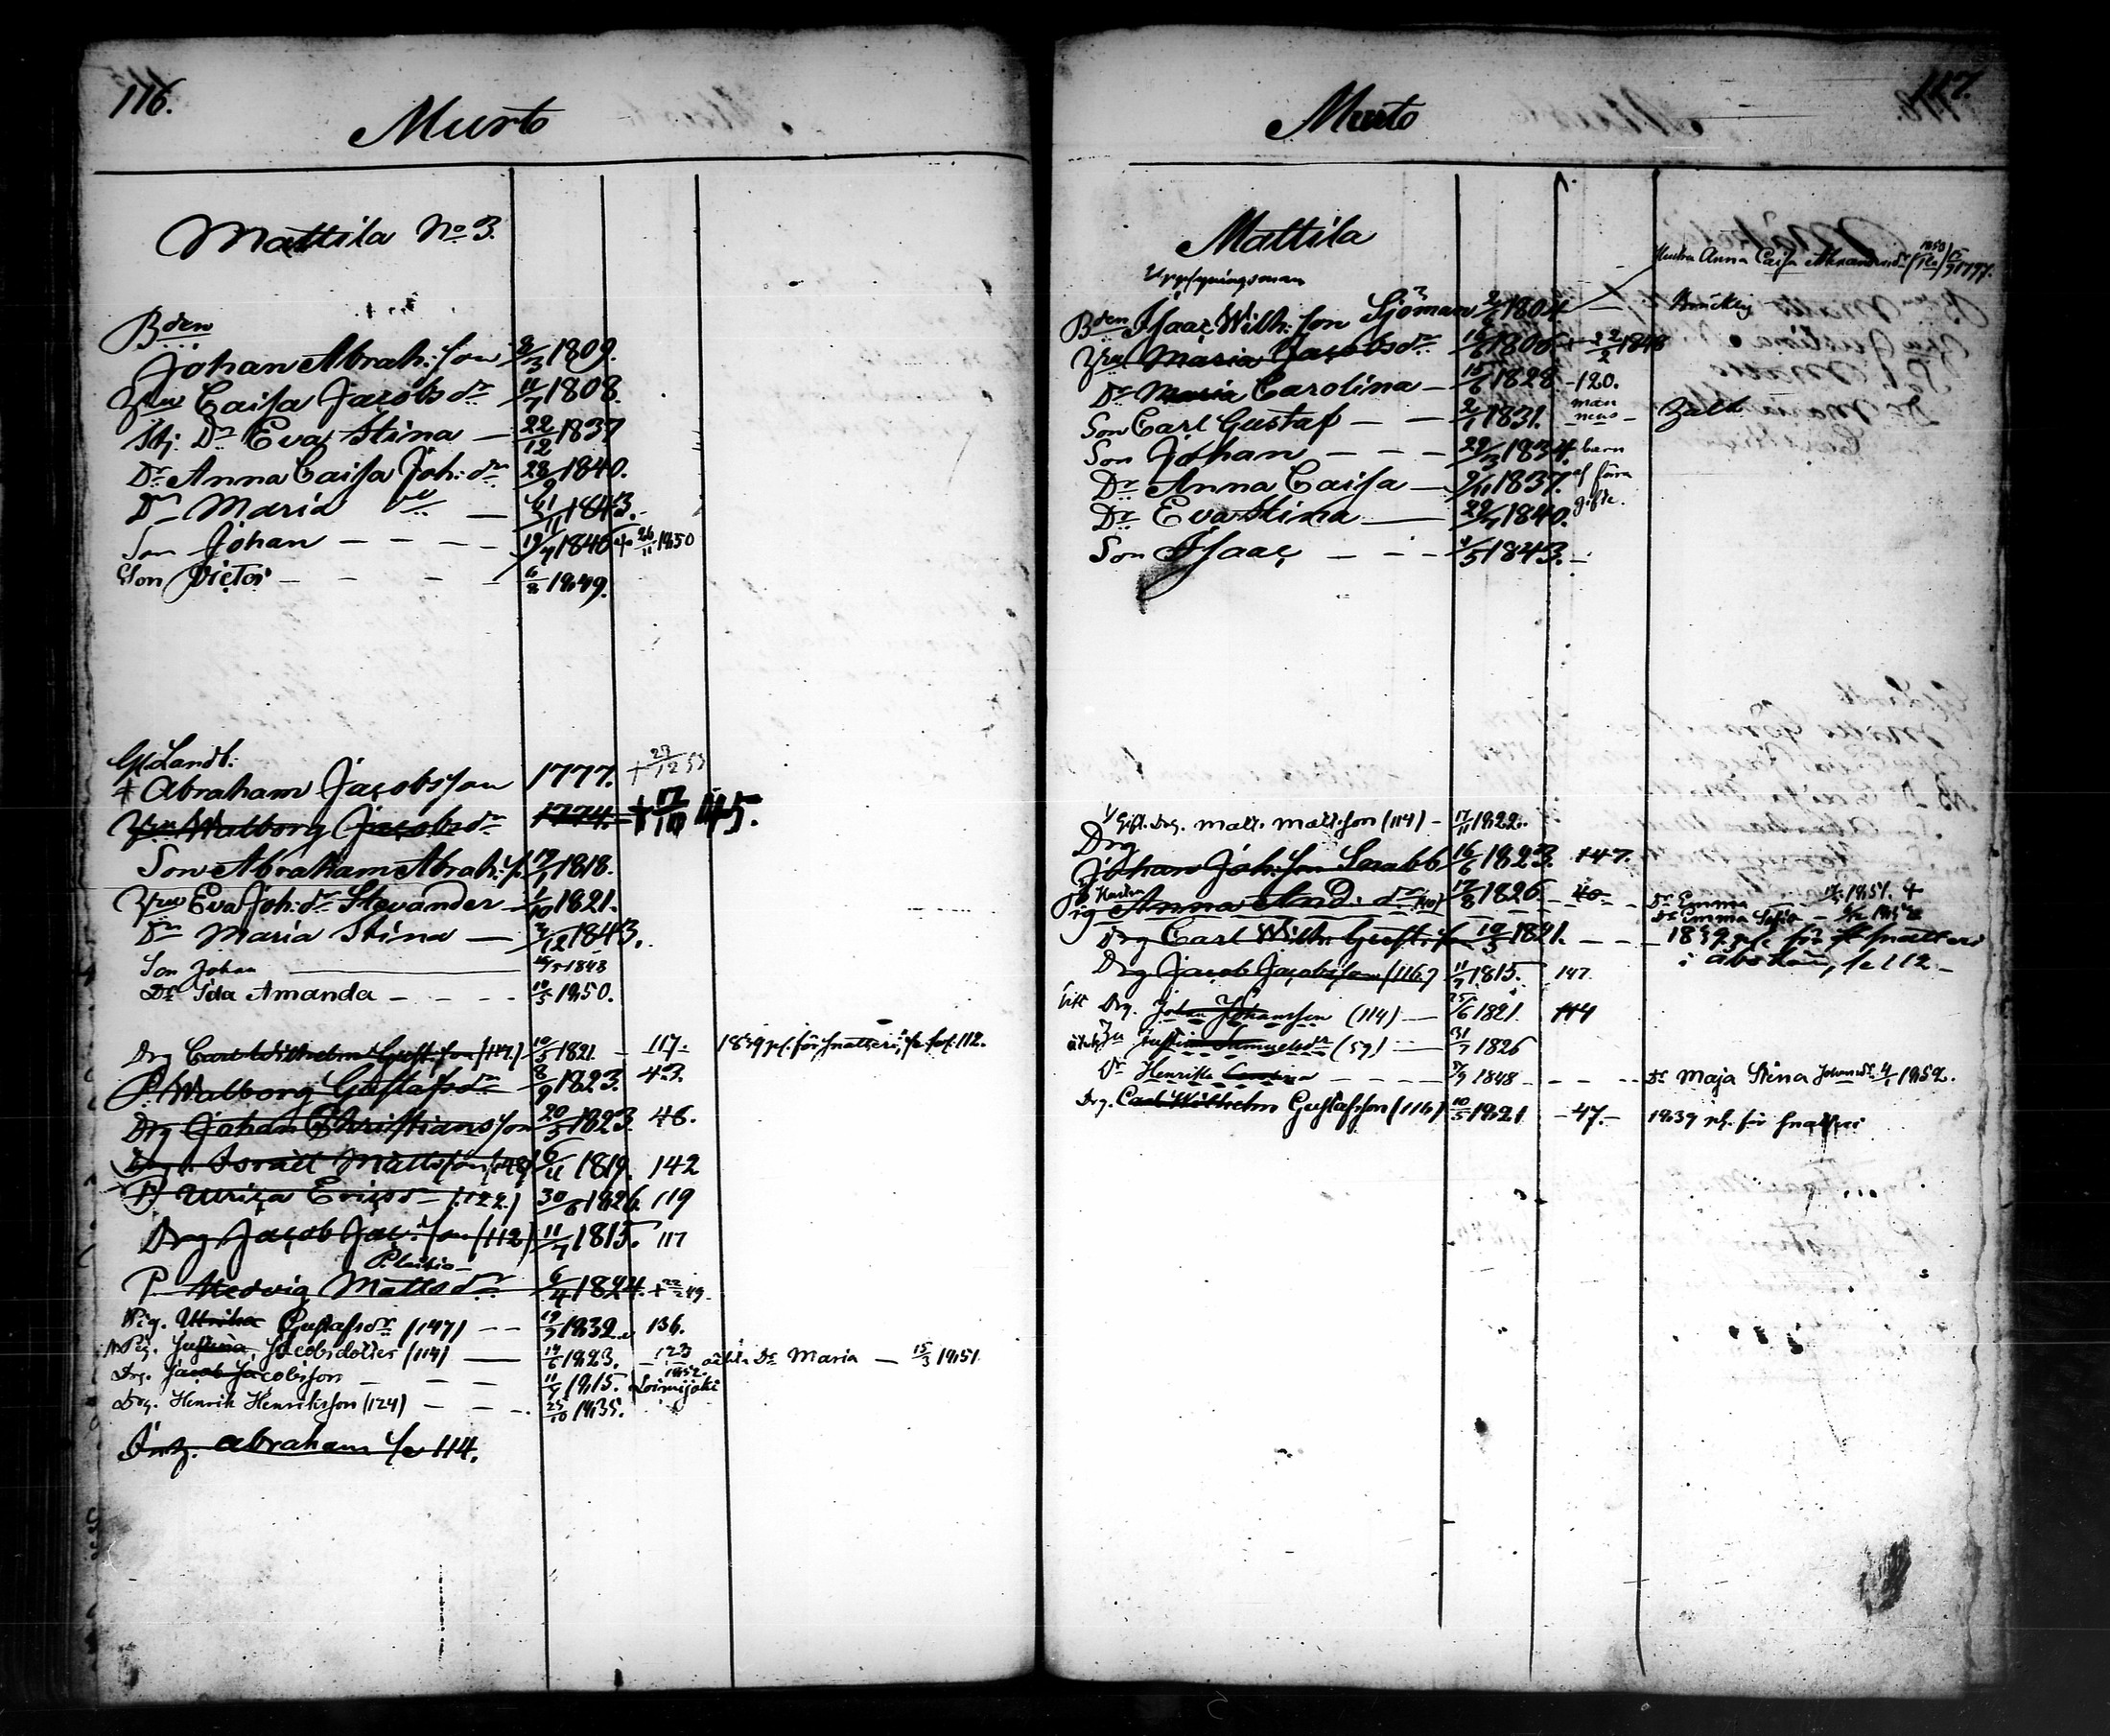 116.
Murto
Mattila No 3.
Bden
Johan Abrah: son 8/3 1809.
Hru Caisa Jacobsdr 11/7 1808.
Stj. Dr Eva Stina — 22/12 1837
Dr Anna Caisa Joh: dr 28/9 1840.
Dr Maria — 1843.
Son Johan — — — 19/7 1846 + 26/11 1850
Son Victor — — — 6/8 1849.
Gl. Landb:
+ Abraham Jacobsson 1777. + 23/12 53
Hru Walborg Jacobsdr 1774. + 17/10 45.
Son Abraham Abrah: s. 1818.
Hru Eva Joh: dr Stevander — 1/10 1821.
Dr Maria Stina — /12 1843.
Son Johan 1848
Dr Ida Amanda — — — 10/5 1850.
Drg Carl Wilhelm Gust. son (117.) 10/5 1821 — 117. 1839 pl. för snatteri, se fol. 112.
P Walborg Gustafsdr 8/9 1823. 43.
Drg Johan Christiansson 20/5 1823. 46.
Drg. Israel Mattsson (148) 6/11 1819. 142
P. Ulrica Ericsdr (122.) 30/8 1826. 119
Drg Jacob Jac: son (112) 11/7 1815. 117
P. Hedvig Mattsdr 6/4 1824. + 49.
Pig. Ulrika Gustafsdr (147) — — 19/5 1832. 136.
Pig. Justina Jacobsdotter (114) — 14/6 1823. — 123 oäkta Dr Maria — 15/3 1851
Drg. Jacob Jacobsson — — — 11/7 1815. 1852 Loimijoki
Drg. Henrik Henriksson (124) — — . 25/10 1835.
Inh. Abraham se 114.
117.
Murto
Mattila
Uppsyningsman
Hustru Anna Caisa Alexandersdr 1797.
Bden Isaac Wilh: son Sjöman 1804
Hru Maria Jacobsdr 16/6 1806. + 22/2 1848
Dr Maria Carolina — 15/6 1828 — 120.
Son Carl Gustaf — — 2/1 1831.
Son Johan — — — 29/3 1834. barn
Dr Anna Caisa — 9/11 1837. af förra
Dr Eva Stina — 29/7 1840. gifte.
Son Isaac — — — 4/5 1843. —
Gift. Drg. Matts Mattsson (114) — 17/11 1822.
Drg
Johan Joh: son Snabb 16/6 1823. 147.
Anna And: dr 17/8 1826 — 40 — Dr Emma — 1851. +
Dr Emma Sofia —
Drg Carl Wilh: Gust: son 10/5 1821. — — 1839 pl. för snatteri
i Åbo län, se 112 —
Drg Jacob Jacobsson (116.) 11/7 1815. 147.
Drg. Johan Johansson (114) — 25/6 1821. 144
Justina Samuelsdr (59) — 13/7 1826
Dr Henrika — — — — 5/9 1848 — — — Dr Maja Stina Johansdr 4/1 1852.
Drg. Carl Wilhelm Gustafsson (116) 10/5 1821 — 47. — 1839 pl. för snatteri